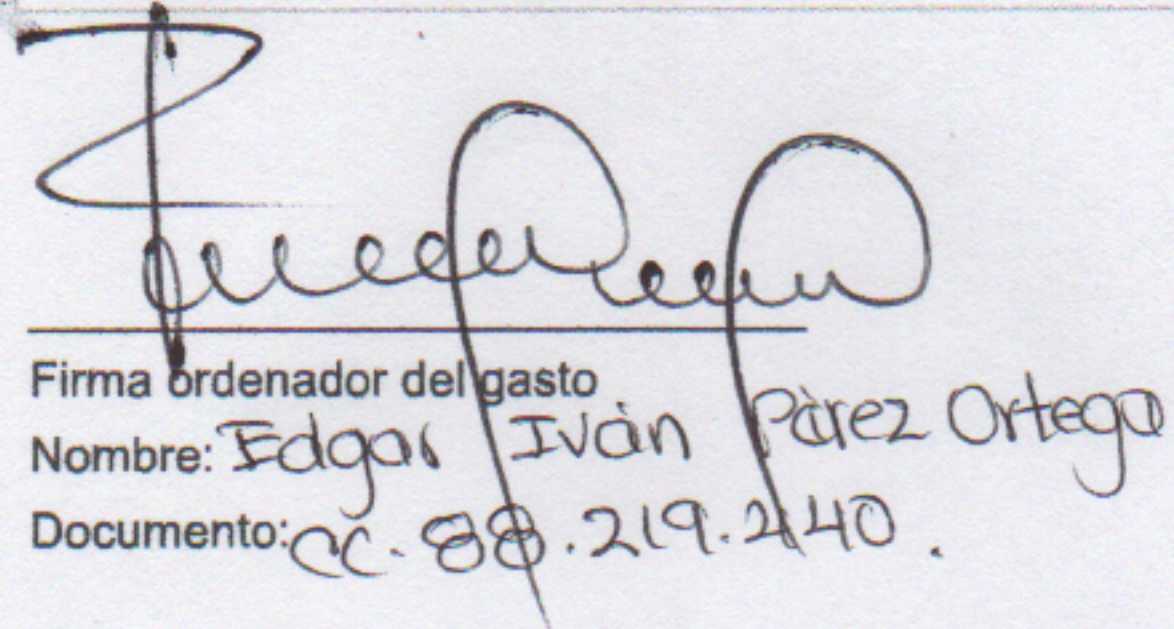 Firma ordenador del gasto
Nombre: Edgar Iván Pàrez Ortega
Documento: CC. 88.219.240.